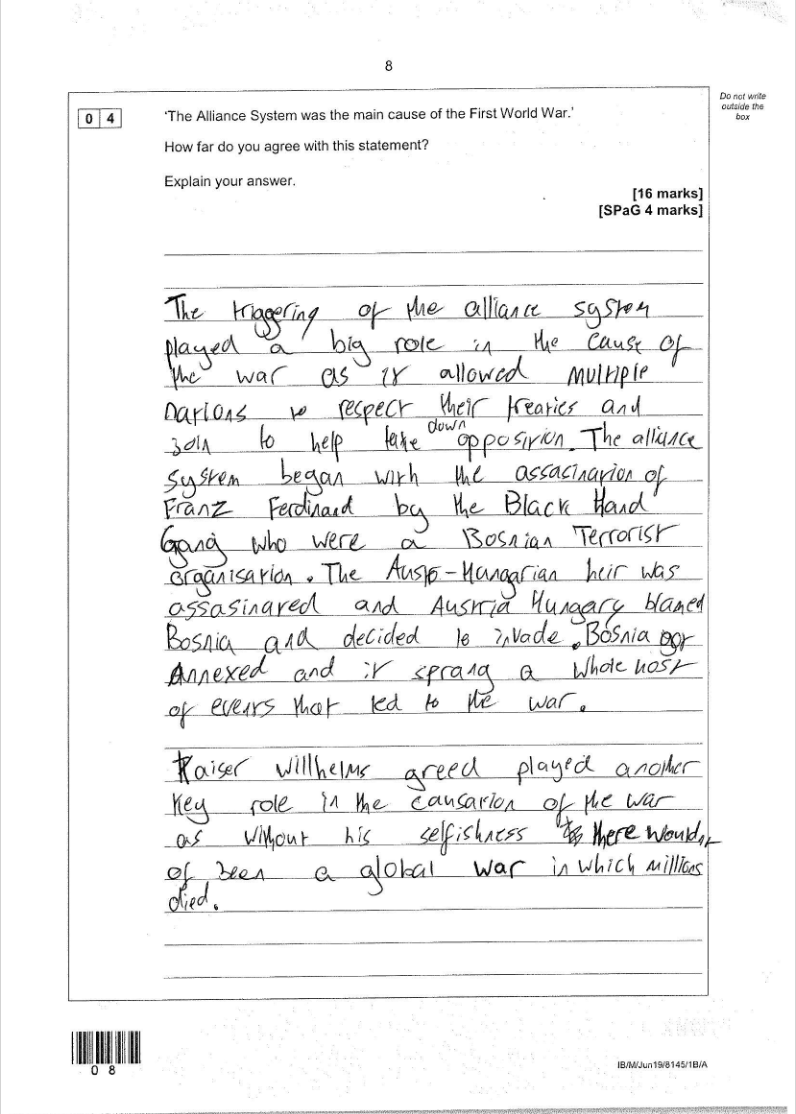 8
Do not write
outside the
box
0 4
'The Alliance System was the main cause of the First World War.'
How far do you agree with this statement?
Explain your answer.
[16 marks]
[SPaG 4 marks]
The triggering of the alliance system
played a big role in the cause of
the war as it allowed multiple
nations to respect their treaties and
join to help take down opposition. The alliance
system began with the assasination of
Franz Ferdinand by the Black Hand
Gang who were a Bosnian Terrorist
organisation. The Austro-Hungarian heir was
assasinated and Austria Hungary blamed
Bosnia and decided to invade. Bosnia got
Annexed and it sprang a whole host
of events that led to the war.
Kaiser Willhelms greed played another
key role in the causation of the war
as without his selfishness there wouldn't
of been a global war in which millions
died.
0 8
IB/M/Jun19/8145/1B/A